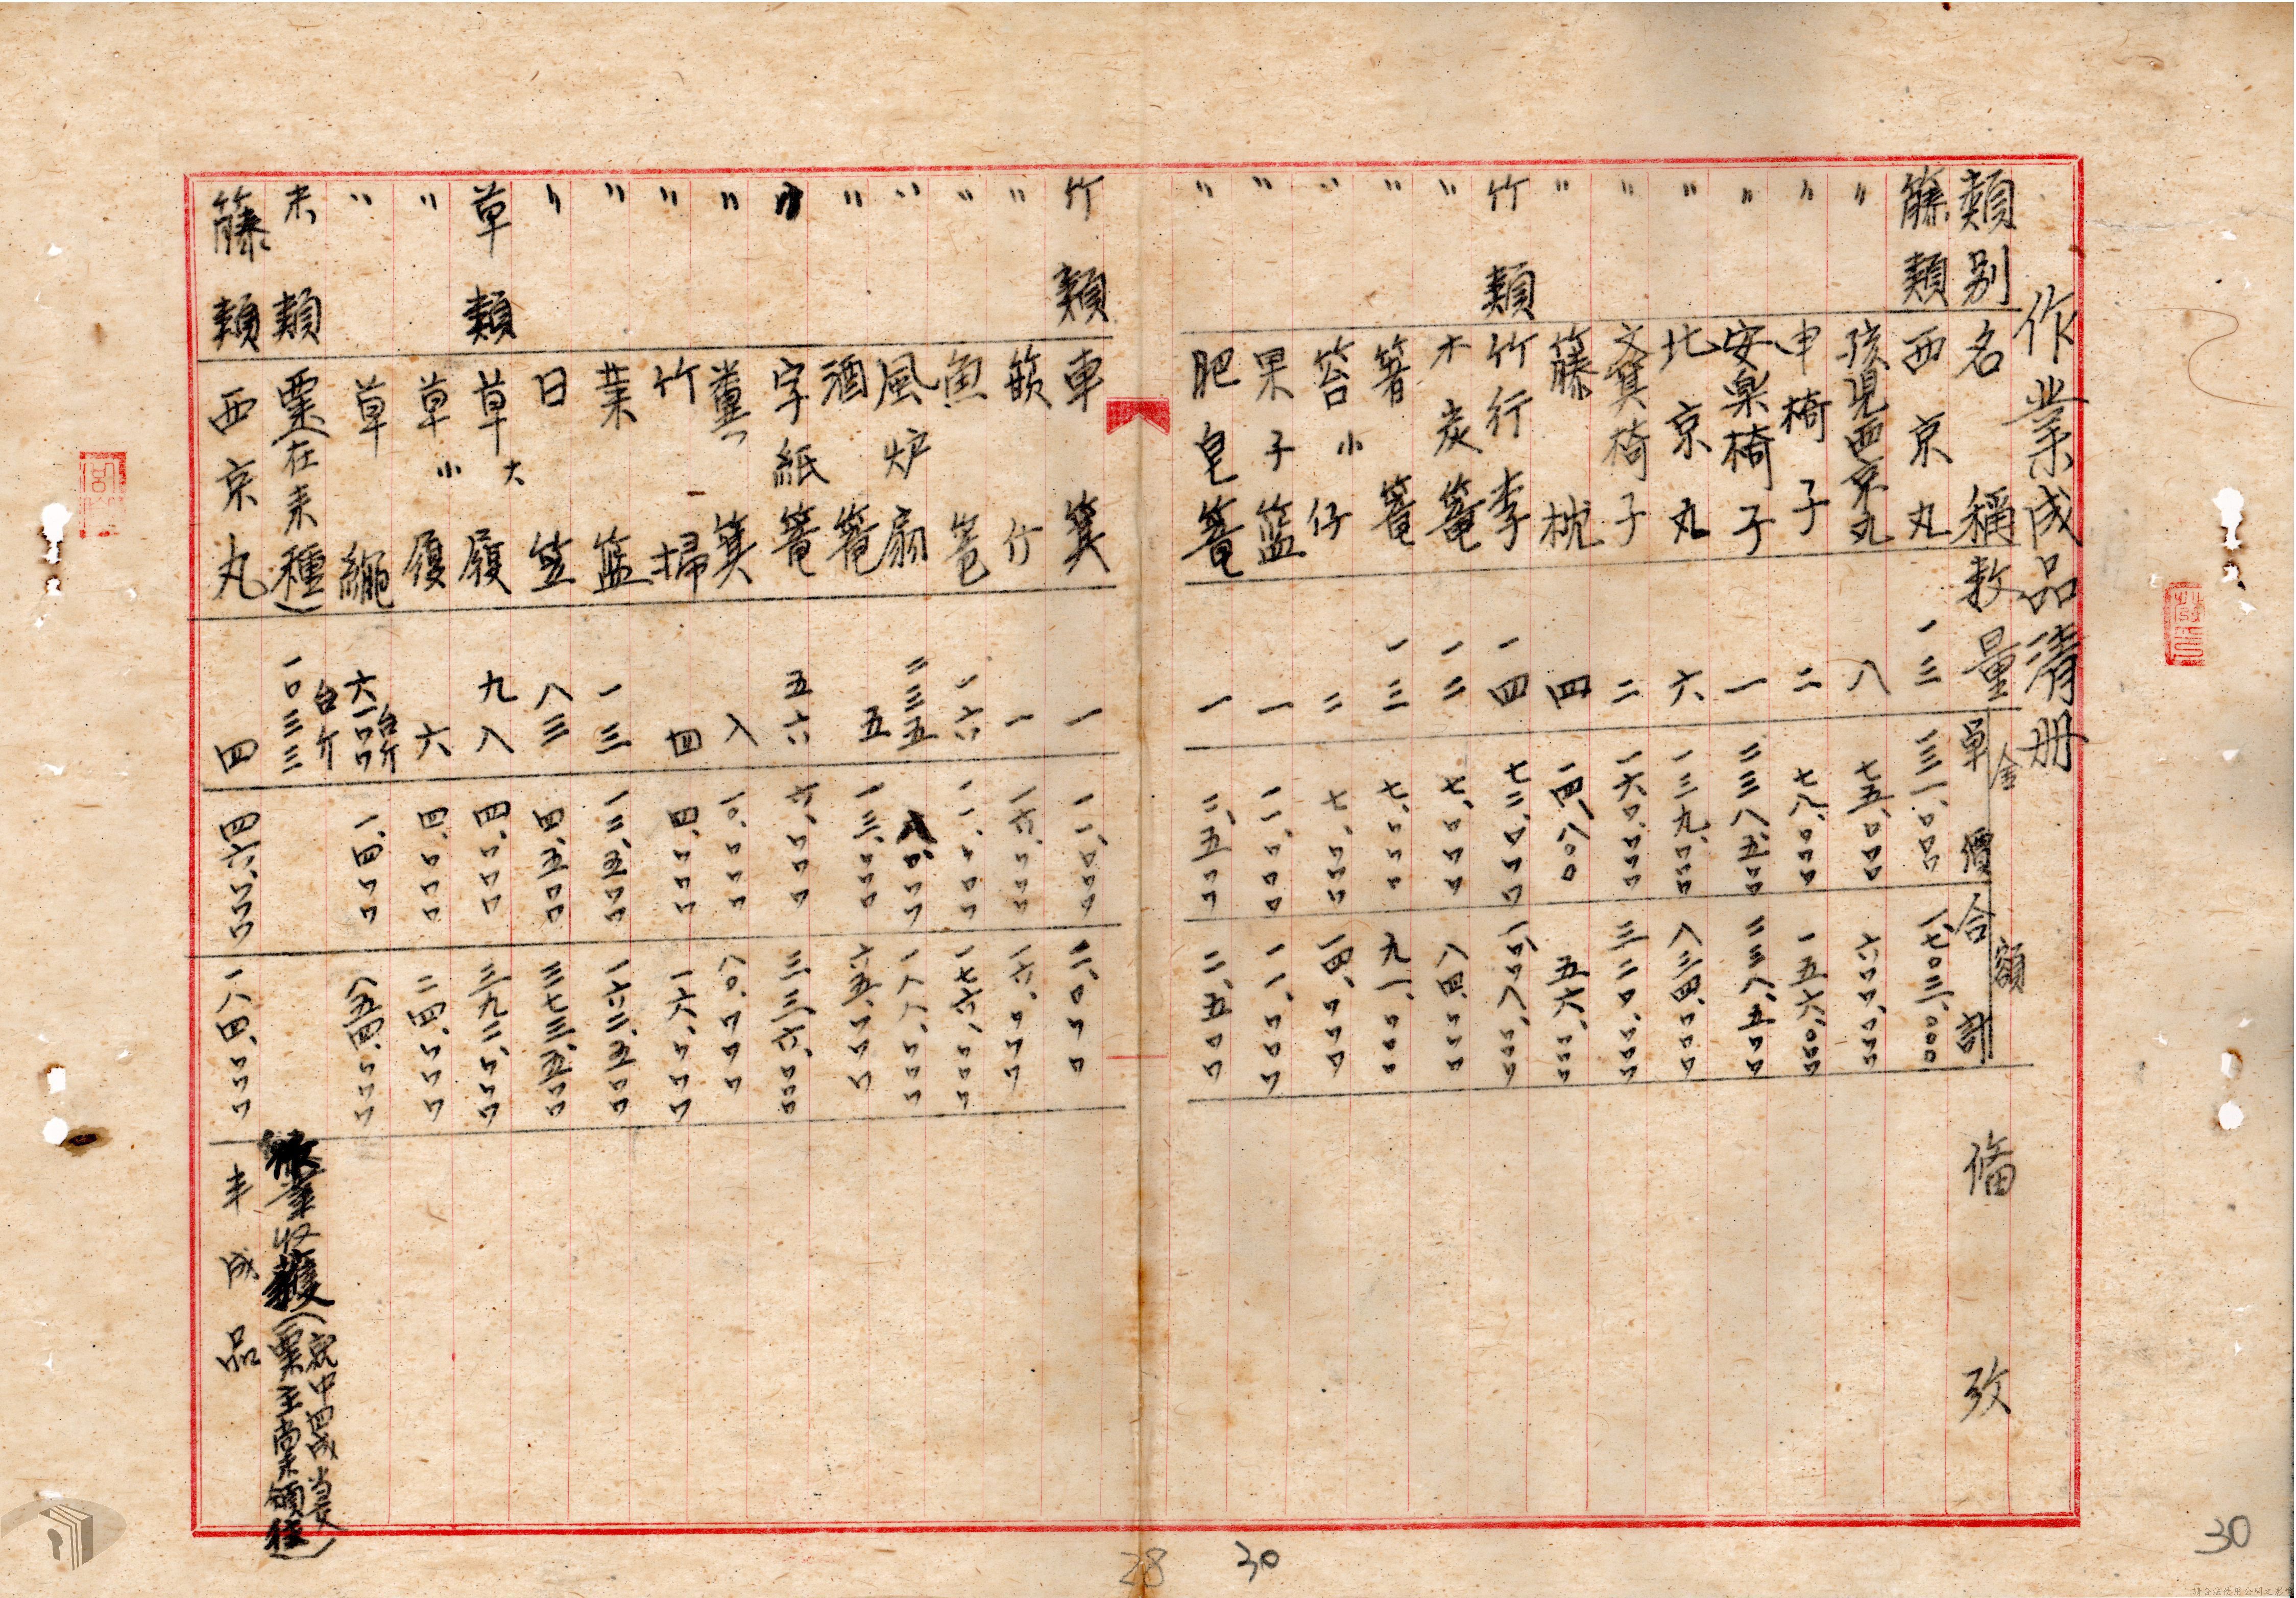 作業成品清册
類別 名稱 数量 金額 單價 合計 備攷
籐類 西京丸 一三 一三一.〇〇〇 一七〇三.〇〇〇
〃 孩児西京丸 八 七五.〇〇〇 六〇〇.〇〇〇
〃 申椅子 二 七八.〇〇〇 一五六.〇〇〇
〃 安楽椅子 一 二三八.五〇〇 二三八.五〇〇
〃 北京丸 六 一三九.〇〇〇 八三四.〇〇〇
〃 椅子 二 一六〇.〇〇〇 三二〇.〇〇〇
〃 籐枕 四 一四.八〇〇 五六.〇〇〇
竹類 竹行李 一四 七二.〇〇〇 一〇〇八.〇〇〇
〃 木炭篭 一二 七.〇〇〇 八四.〇〇〇
〃 箸篭 一三 七.〇〇〇 九一.〇〇〇
〃 笞小仔 二 七.〇〇〇 一四.〇〇〇
〃 果子籃 一 一一.〇〇〇 一一.〇〇〇
〃 肥皂篭 一 二.五〇〇 二.五〇〇
竹類 車箕 一 一一.〇〇〇 一一.〇〇〇
〃 竹 一 一六.〇〇〇 一六.〇〇〇
〃 魚篭 一六 一一.〇〇〇 一七六.〇〇〇
〃 風炉扇 二三五 八.〇〇〇 一八八.〇〇〇
〃 酒篭 五 一三.〇〇〇 六五.〇〇〇
〃 字紙篭 五六 六.〇〇〇 三三六.〇〇〇
〃 糞箕 八 一〇.〇〇〇 八〇.〇〇〇
〃 竹掃 四 四.〇〇〇 一六.〇〇〇
〃 葉籃 一三 一二.五〇〇 一六二.五〇〇
〃 日笠 八三 四.五〇〇 三七三.五〇〇
草類 草大履 九八 四.〇〇〇 三九二.〇〇〇
〃 草小履 六 四.〇〇〇 二四.〇〇〇
〃 草繩 六一〇台斤 一.四〇〇 八五四.〇〇〇
未類 粟(在来種) 一〇三三台斤 收穫(就中四成当受粟主尚未領往)
籐類 西京丸 四 四六.〇〇〇 一八四.〇〇〇 半成品
28
30
30